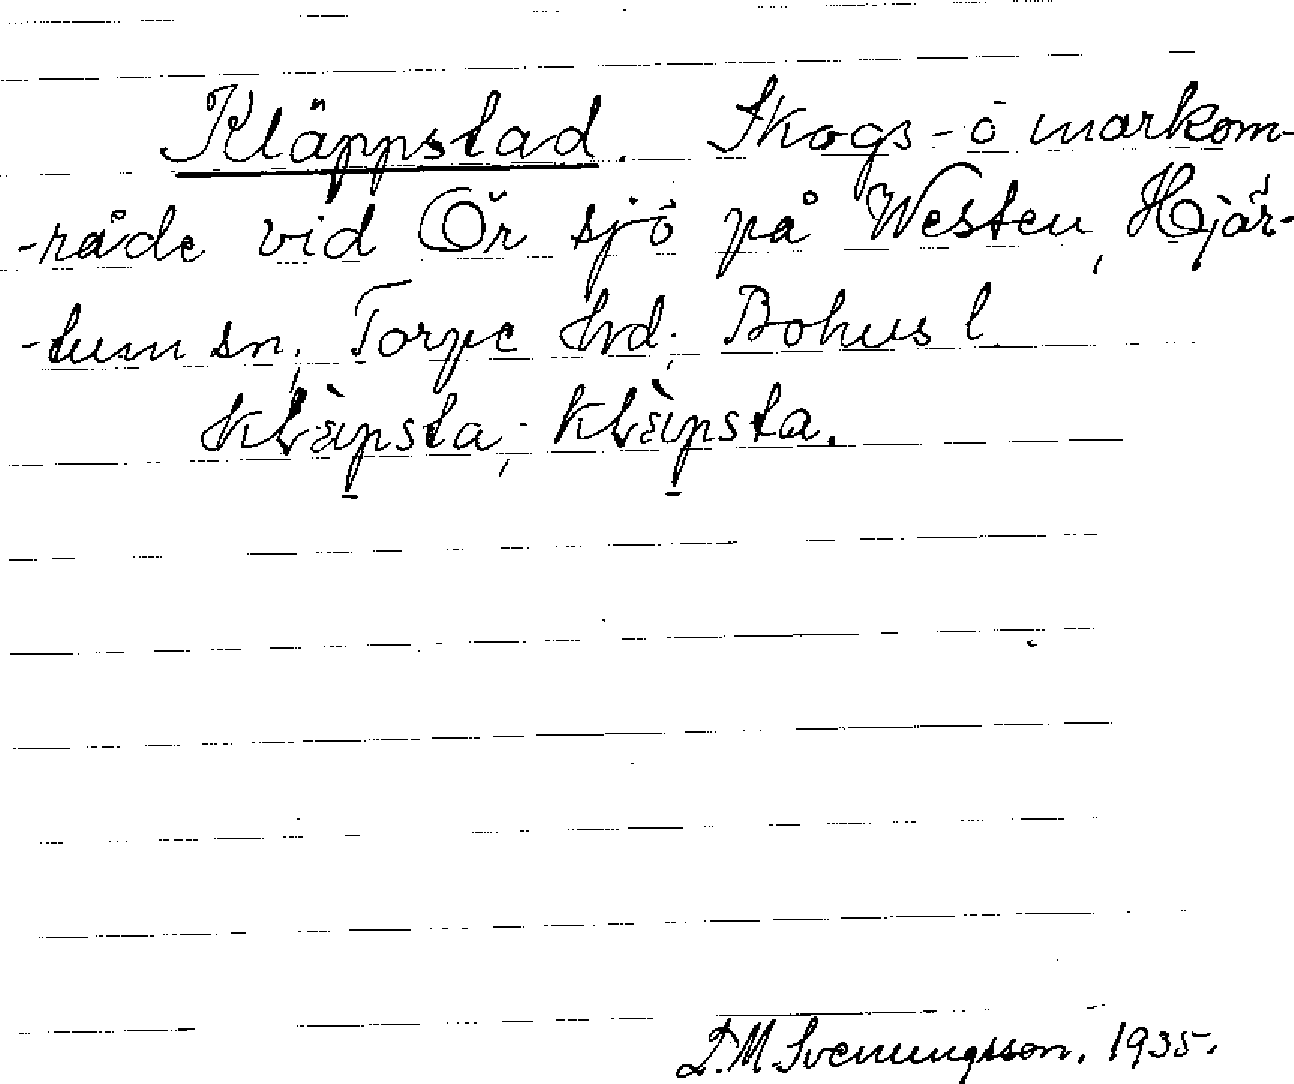 Kläppstad. Skogs- o markom-
-råde vid Ör sjö på Westen, Hjär-
-tum sn, Torpe hrd; Bohus l.
Klä̀psta; Klä̀psta.
D.M. Svenungsson. 1935.